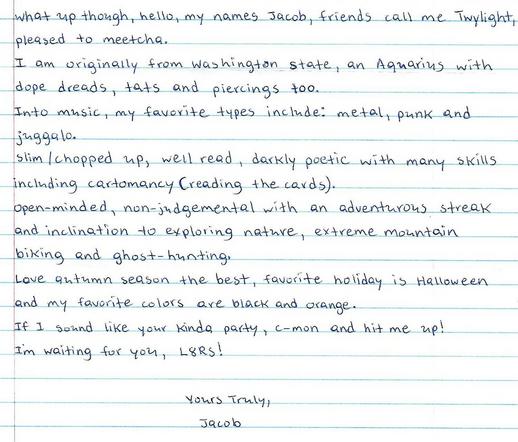 what up though, hello, my names Jacob, friends call me Twylight,
pleased to meetcha.
I am originally from Washington state, an Aquarius with
dope dreads, tats and piercings too.
Into music, my favorite types include: metal, punk and
juggalo.
slim/chopped up, well read, darkly poetic with many skills
including cartomancy (reading the cards).
open-minded, non-judgemental with an adventurous streak
and inclination to exploring nature, extreme mountain
biking and ghost-hunting.
Love autumn season the best, favorite holiday is Halloween
and my favorite colors are black and orange.
If I sound like your kinda party, c-mon and hit me up!
I'm waiting for you, L8RS!
Yours Truly,
Jacob